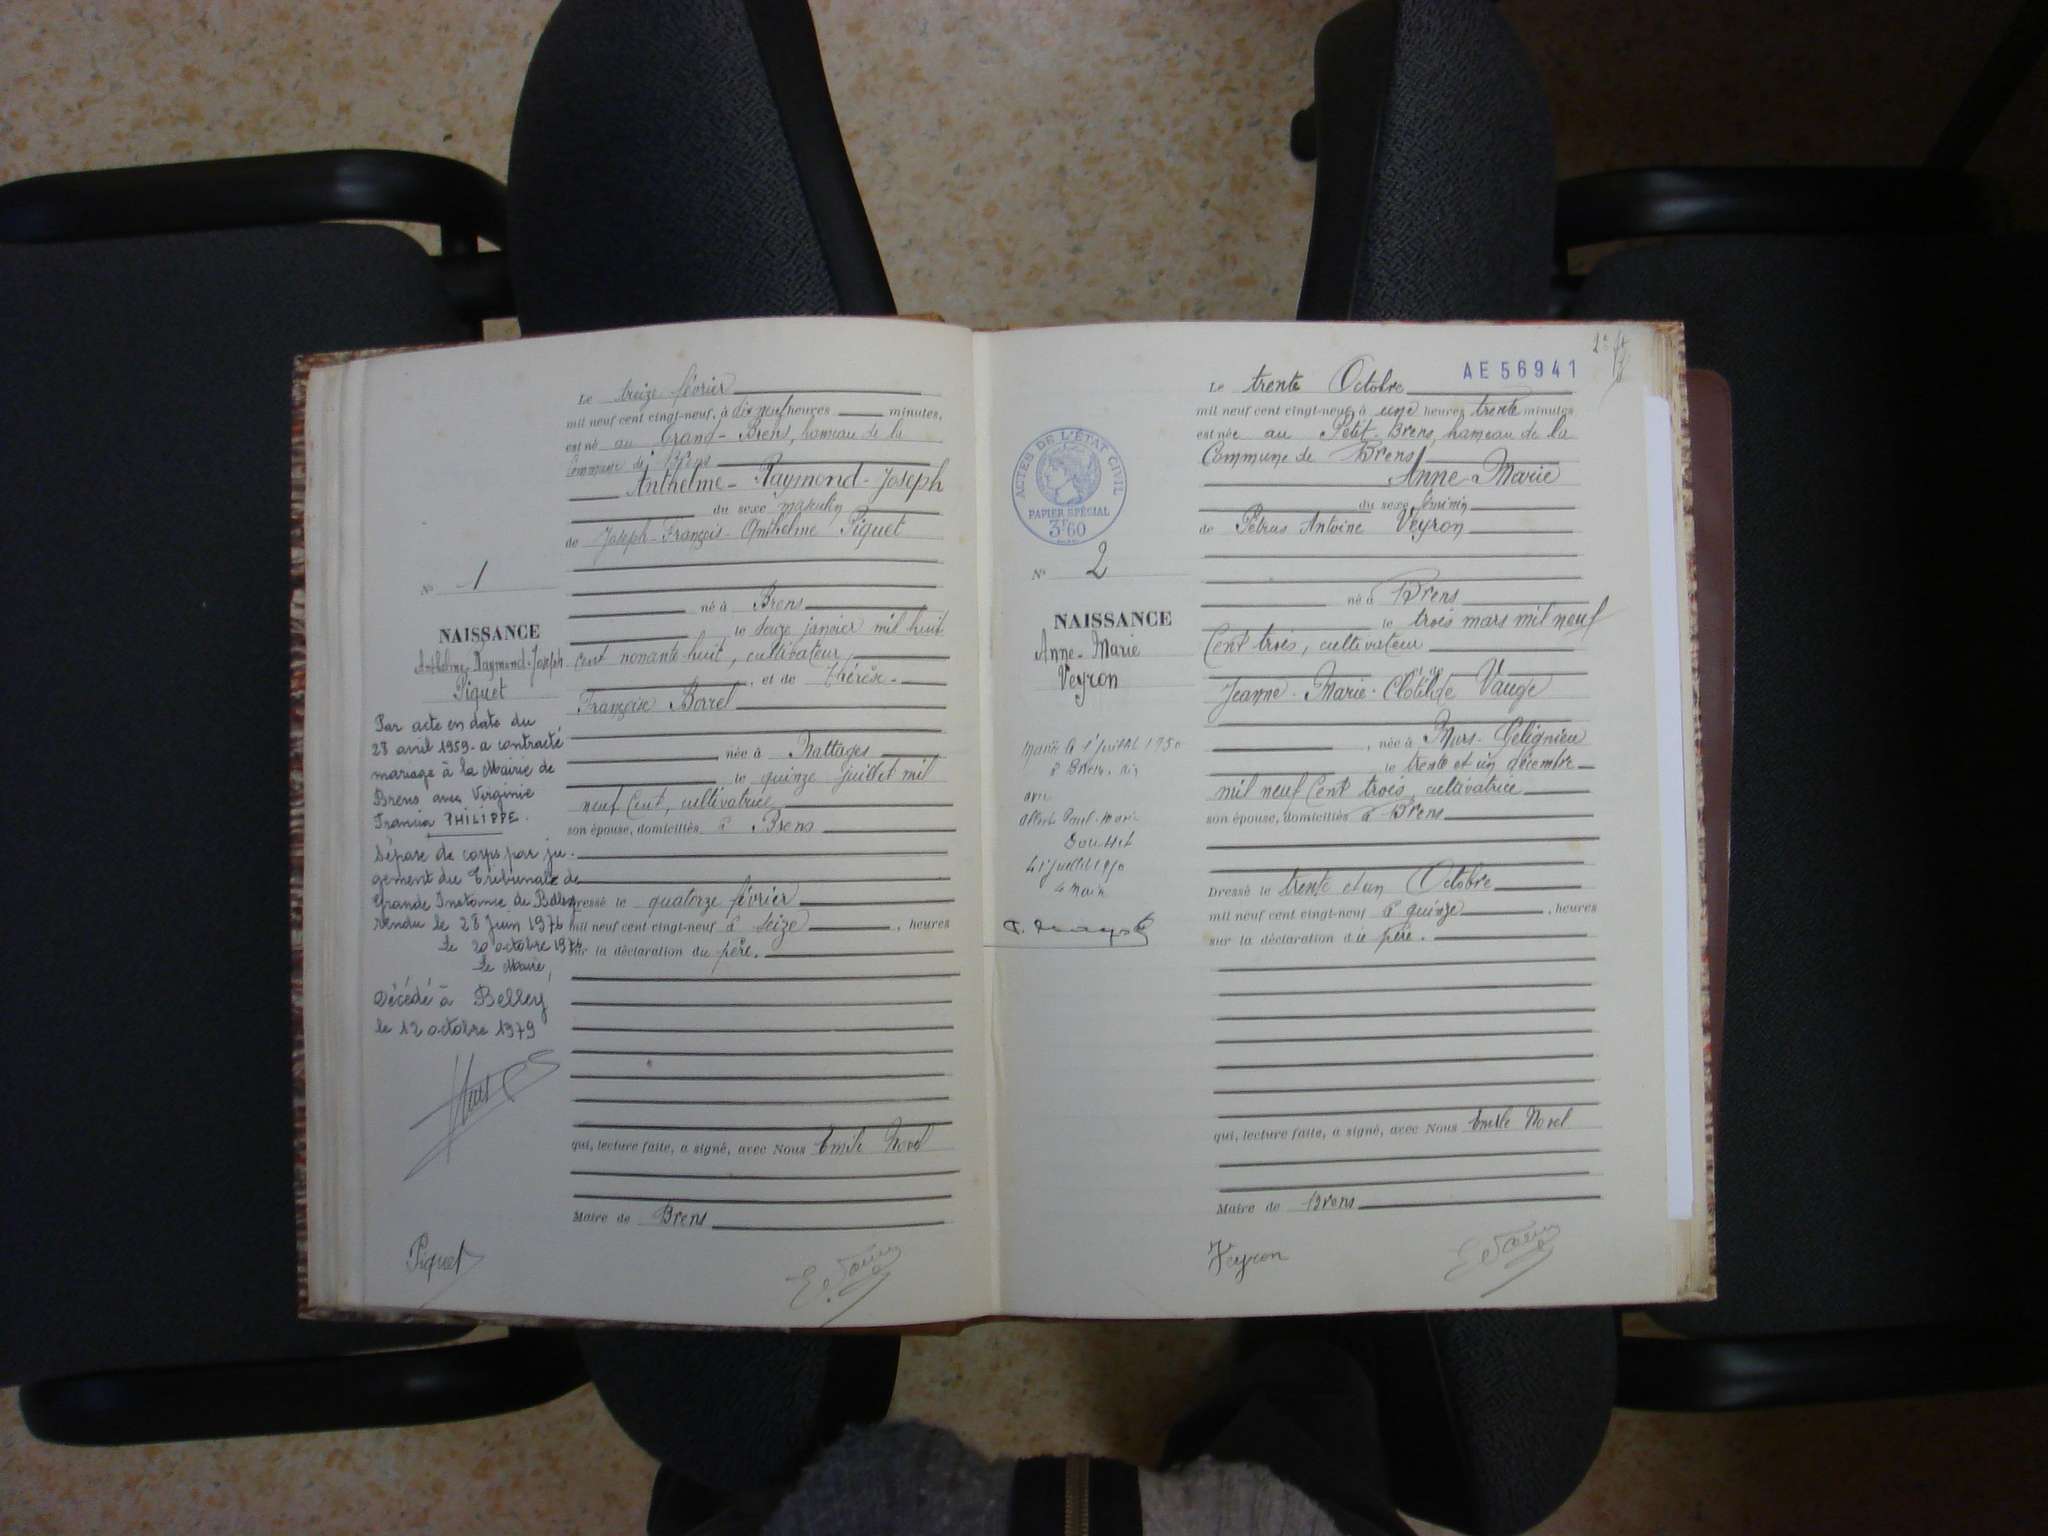 Le treize février
mil neuf cent vingt-neuf, à dix neuf heures minutes,
est né au Grand-Brens, hameau de la
Commune de Brens
Anthelme-Raymond-Joseph
du sexe masculin
de Joseph-François-Anthelme Piquet
né à Brens
le douze janvier mil huit
cent nonante huit, cultivateur,
, et de Thérèse-
Françoise Borrel
, née à Nattages
le quinze juillet mil
neuf Cent, cultivatrice
son épouse, domiciliés à Brens
Dressé le quatorze février
mil neuf cent vingt-neuf à seize , heures
sur la déclaration du père.
qui, lecture faite, a signé, avec Nous Emile Novel
Maire de Brens
Piquet
N° 1
NAISSANCE
Anthelme Raymond-Joseph
Piquet
Par acte en date du
28 avril 1959 a contracté
mariage à la Mairie de
Brens avec Virginie
Francia PHILIPPE.
Séparé de corps par ju-
gement du Tribunal de
Grande Instance de Belley
rendu le 28 Juin 1976
le 20 octobre 1976
Le Maire,
Décédé à Belley
le 12 octobre 1979
AE 56941
Le trente Octobre
mil neuf cent vingt-neuf, à une heures trente minutes
est née au Petit-Brens, hameau de la
Commune de Brens
Anne-Marie
du sexe féminin
de Pétrus Antoine Veyron
né à Brens
le trois mars mil neuf
Cent trois, cultivateur
et de
Jeanne-Marie-Clotilde Vauge
, née à Murs-Gélignieu
le trente et un décembre
mil neuf Cent trois, cultivatrice
son épouse, domiciliés à Brens
Dressé le trente et un Octobre
mil neuf cent vingt-neuf à quinze , heures
sur la déclaration du père.
qui, lecture faite, a signé, avec Nous Emile Novel
Maire de Brens
Veyron
ACTES DE L'ÉTAT CIVIL
PAPIER SPÉCIAL
3F60
N° 2
NAISSANCE
Anne-Marie
Veyron
Mariée le 1 juillet 1950
à Brens, Ain
avec
Albert Paul-Marie
le 1 juillet 1950
Le Maire